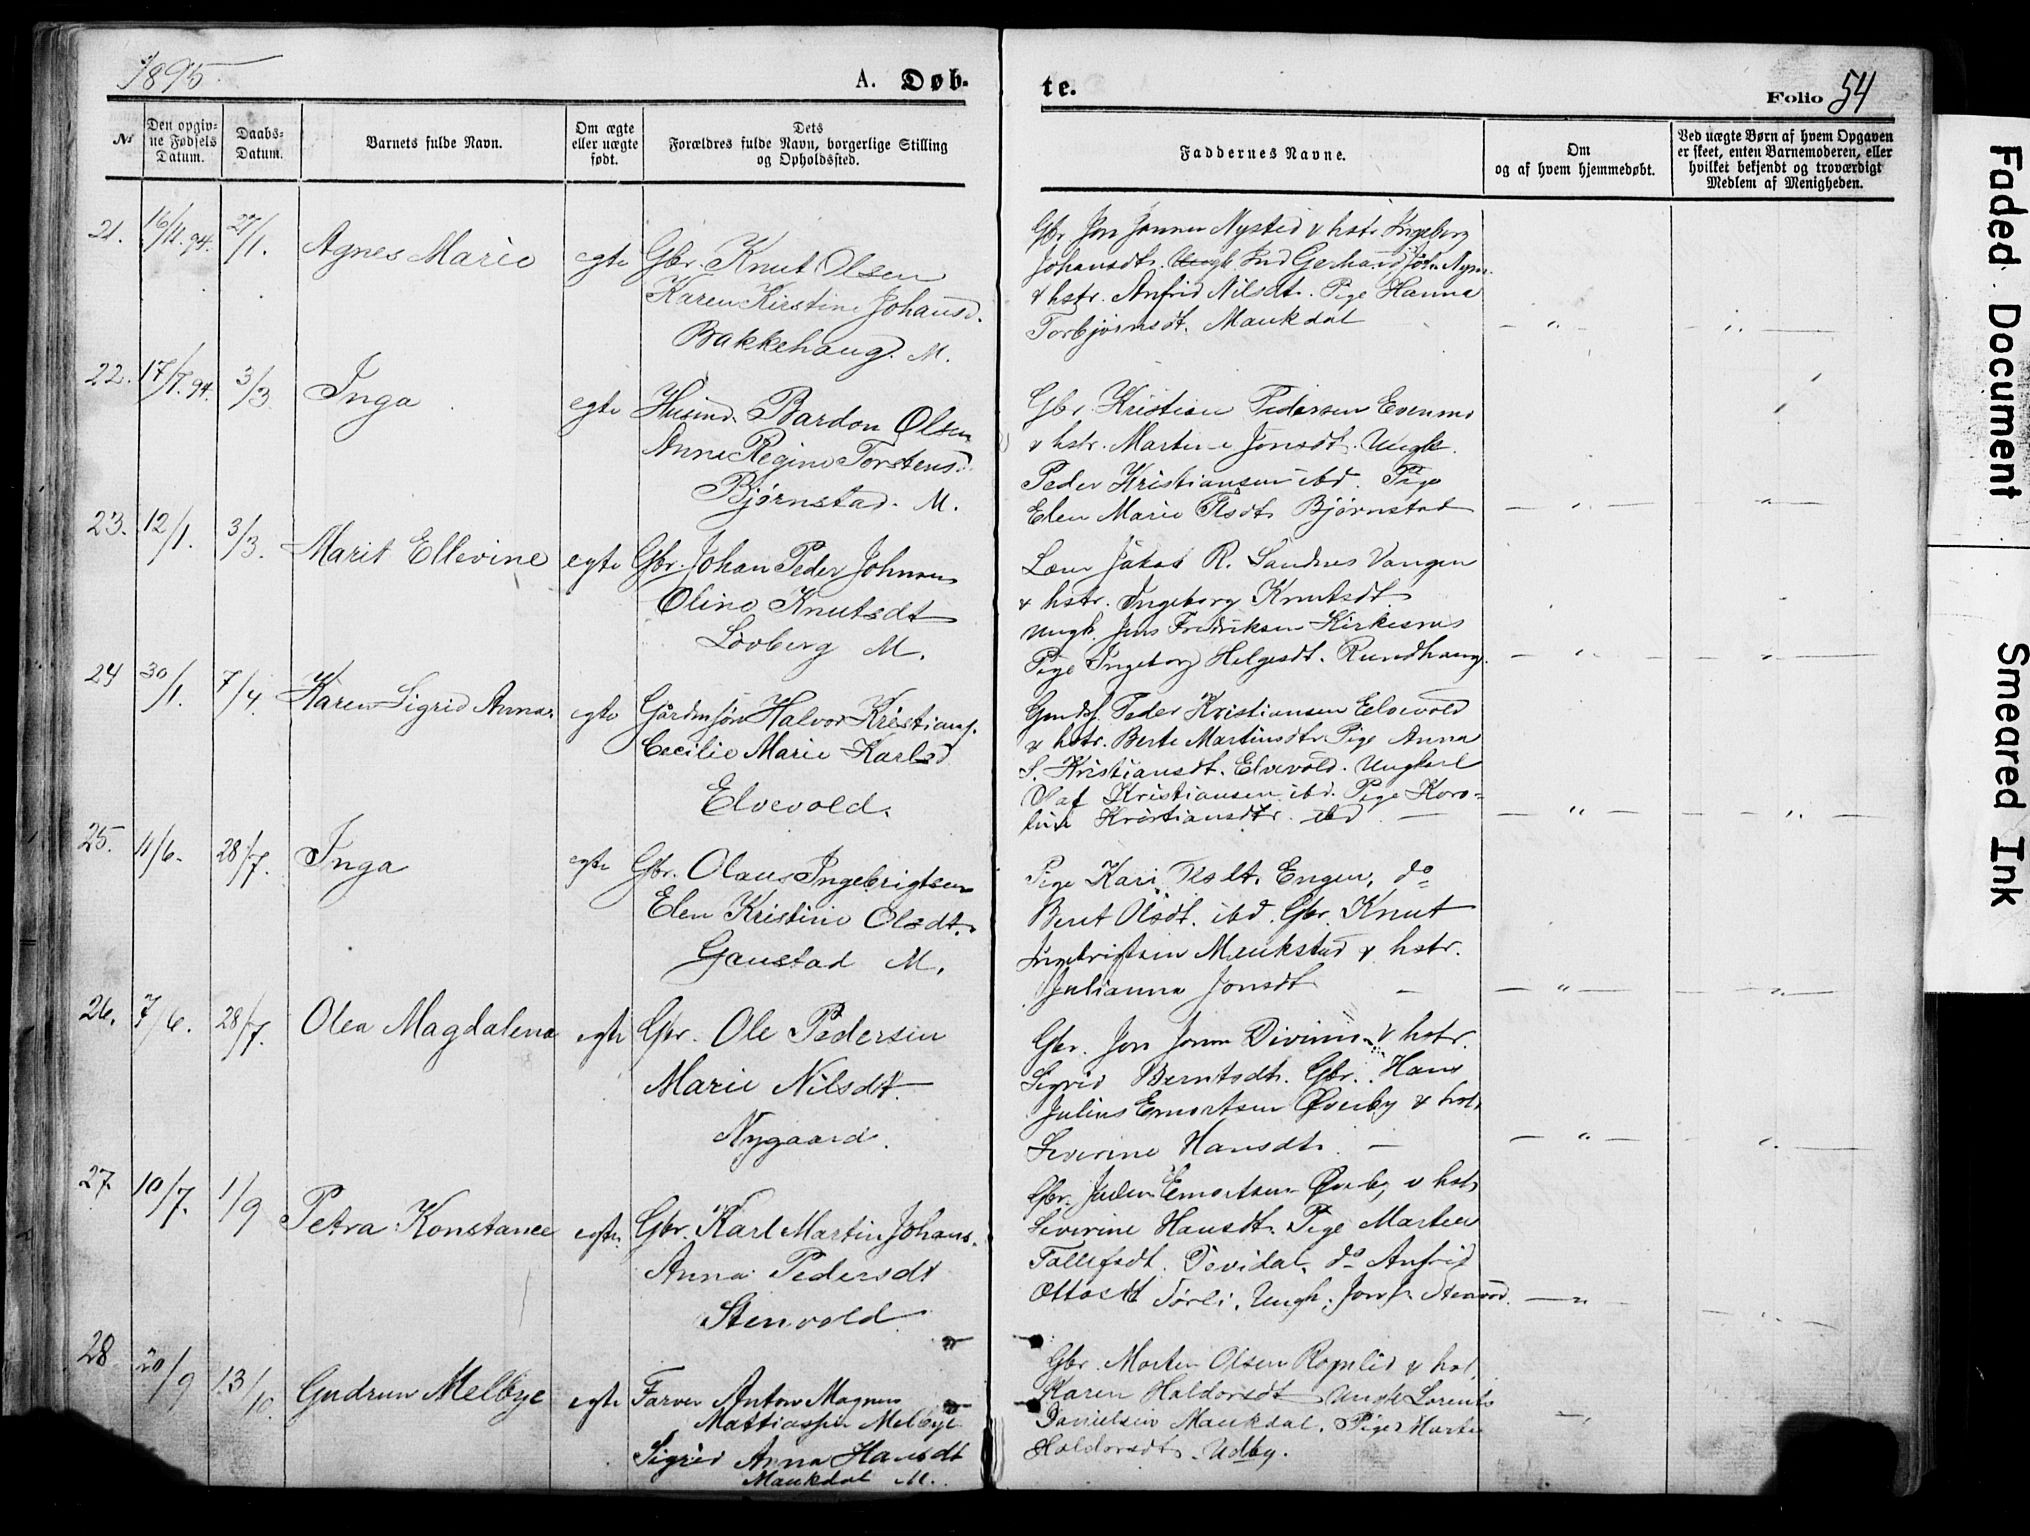 1895.
A. Døb-
te.
Folio 54
Nr
Den opgivne Fødsels Datum.
Daabs-Datum.
Barnets fulde Navn.
Om ægte eller uægte født.
Dets Forældres fulde Navn, borgerlige Stilling og Opholdssted.
Faddernes Navne.
Om og af hvem hjemmedøbt.
Ved uægte Børn af hvem Opgaven er skeet, enten Barnemoderen, eller hvilket bekjendt og troværdigt Medlem af Menigheden.
21. 16/11.94. 27/1. Agnes Marie egte Gbr. Knut Olsen
Karen Kirstine Johansd.
Bakkehaug. M.
Gbr Jon Jonsen Nysted & hstr Ingeborg
Johansdt. Ind Gerhard
& hstr. Anfrid Nilsdt. Pige Hanna
Torbjørnsdt. Maukdal
22. 17/7.94. 3/3. Inga egte Husmd. Bardon Olsen
Anne Regine Torstensd.
Bjørnstad. M.
Gbr Kristian Pedersen Evenmo
& hstr. Martine Jonsdt. Ungk.
Peder Kristiansen ibd. Pige
Elen Marie Bjørnstad
23. 12/1. 3/3. Marit Ellevine egte Gbr. Johan Peder Johnsen
Oline Knutsdt
Løvberg M.
Lærer Jakob R. Sandnes Vangen
& hstr. Ingeborg Knutsdt
Ungk. Jens Fredriksen Kirkesnes
Pige Ingeborg Helgesdt. Rundhaug.
24 30/1. 7/4. Karen Sigrid Anna egte Gårdm.søn Halvor Kristians.
Cecilie Marie Karlsd
Elvevold.
Gmds. Peder Kristiansen Elvevold
& hstr. Berte Martinsdtr Pige Anna
S. Kristiansdt. Elvevold. Ungkarl
Olaf Kristiansen ibd. Pige Karo=
line Kristiansdtr. ibd
25. 4/6. 28/7. Inga egte Gbr. Olaus Ingebrigtsen
Elen Kristine Olsdt.
Gaustad M.
Pige Kari Engen, do
Berit Olsdt. ibd. Gbr. Knut
Ingebrigtsen Maukstad & hstr.
Julianna Jonsdt
26. 7/6. 28/7. Olea Magdalena egte Gbr. Ole Pedersen
Marie Nilsdt.
Nygaard.
Gbr. Jon Jonsen & hstr.
Sigrid Berntsdt. Gbr. Hans
Julius Emortsen Øverby & hst.
Severine Hansdt.
27. 10/7. 1/9 Petra Konstance egte. Gbr. Karl Martin Johans.
Anna Pedersdt
Stenvold.
Gbr. Julius Emortsen Øverby & hstr
Severine Hansdt. Pige Marten
Tollefsdt. Devidal, do Anfrid
Ottosdt Sørli, Ungk.
28. 20/9 13/10. Gudrun Melbye egte Farver Anton Magnus
Mattiassen Melbye
Sigrid Anna Hansdt
Maukdal M.
Gbr. Morten Olsen & hst.
Karen Haldorsdt Ungk Lorents
Danielsen Maukdal. Pige Marte
Haldorsdt. Udby.
Faded Document
Smeared Ink